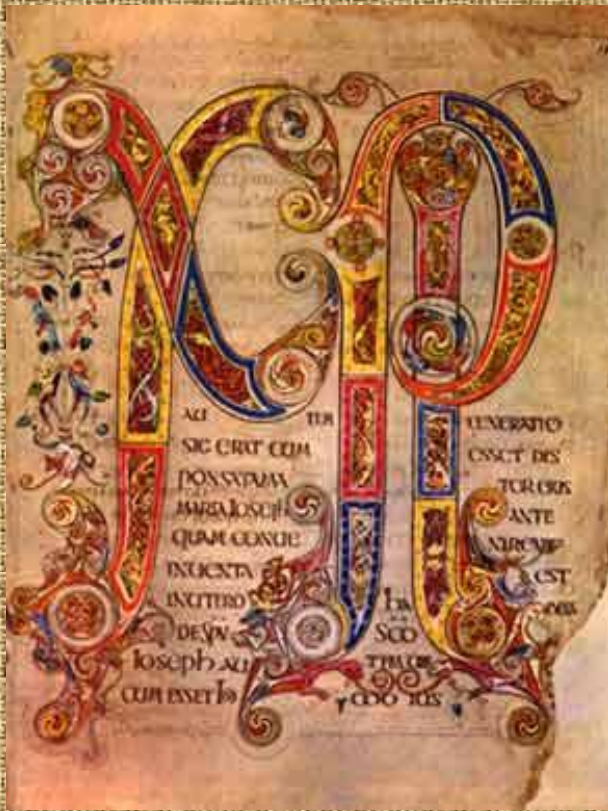 XPI
AU TEM GENERATIO
SIC ERAT CUM ESSET DIS
PONSATA MA TER EIUS
MARIA IOSEPH ANTE
QUAM CONUE NIRENT
INUENTA EST
INUTERO HA
DE SPU SCO
Ioseph AU
CUM ESSET HO MO IUS